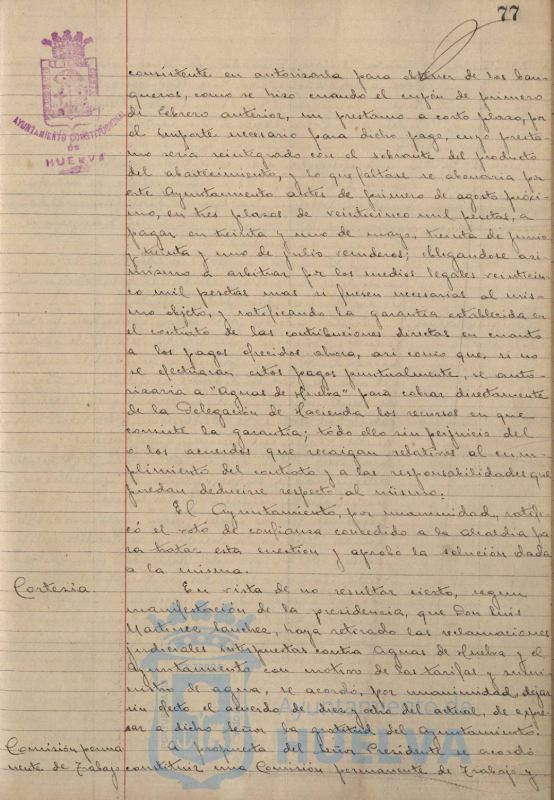 77
AYUNTAMIENTO CONSTITUCIONAL
DE
HUELVA
consistente en autorizarla para obtener de los ban-
queros, como se hizo cuando el cupón de primero
de febrero anterior, un préstamo a corto plazo, por
el importe necesario para dicho pago, cuyo présta-
mo sería reintegrado con el sobrante del producto
del abastecimiento, y lo que faltase se abonaria por
este Ayuntamiento antes de primero de agosto próxi-
mo, en tres plazos de veinticinco mil pesetas, a
pagar en treinta y uno de mayo, treinta de junio
y treinta y uno de julio venideros; obligandose asi-
mismo a arbitrar por los medios legales veinticin-
co mil pesetas mas si fuesen necesarias al mis-
mo objeto, y ratificando la garantia establecida en
el contrato de las contribuciones directas en cuanto
a los pagos ofrecidos ahora, asi como que, si no
se efectuaran estos pagos puntualmente, se auto-
rizaria a "Aguas de Huelva" para cobrar directamente
de la Delegación de Hacienda los recursos en que
consiste la garantia; todo ello sin perjuicio del
o los acuerdos que recaigan relativos al cum-
plimiento del contrato y a las responsabilidades que
puedan deducirse respecto al mismo.
El Ayuntamiento, por unanimidad, ratifi-
có el voto de confianza concedido a la alcaldia pa-
ra tratar esta cuestion y aprobó la solución dada
a la misma.
Cortesia.
En vista de no resultar cierto, segun
manifestación de la presidencia, que Don Luis
Martinez Sanchez, haya retirado las reclamaciones
judiciales interpuestas contra Aguas de Huelva y el
Ayuntamiento con motivo de las tarifas y sumi-
nistro de agua, se acordó, por unanimidad, dejar
sin efecto el acuerdo de diez y ocho del actual, de expre-
sar a dicho Señor la gratitud del Ayuntamiento.
Comisión perma-
nente de Trabajo
A propuesta del Señor Presidente se acordó
constituir una Comisión permanente de Trabajo y
Ayuntamiento de
HUELVA